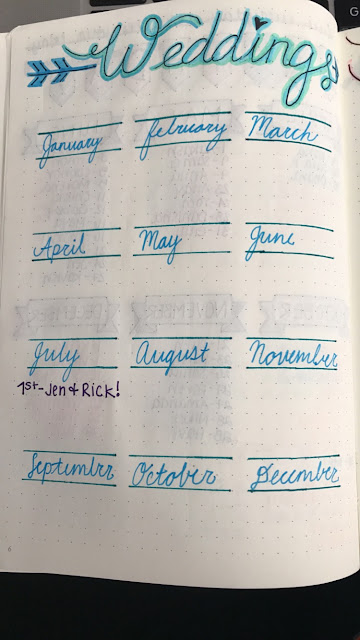 Weddings
January February March
April May June
July August November
1st - Jen & Rick!
September October December